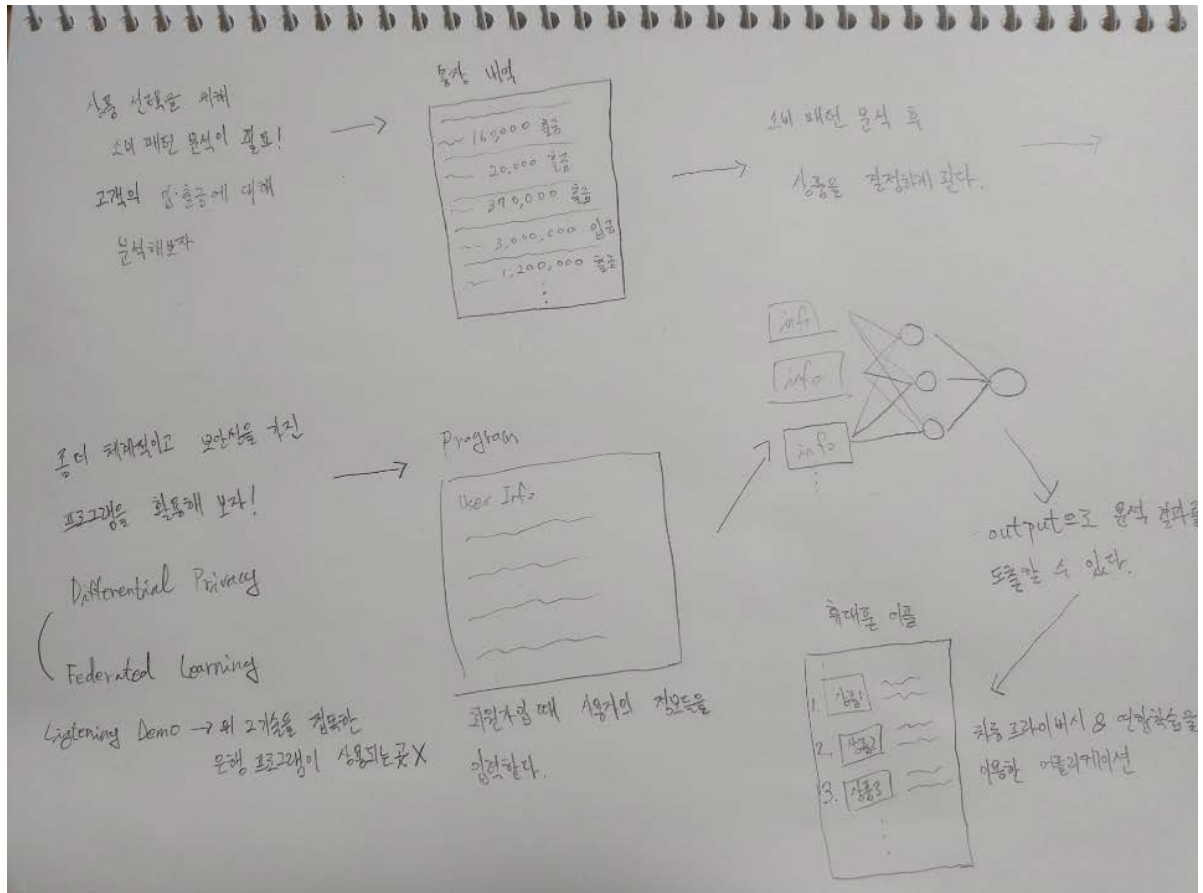 상품 선택을 위해
소비 패턴 분석이 필요!
고객의 입·출금에 대해
분석해보자
통장 내역
160,000 출금
20,000 출금
370,000 출금
3,000,000 입금
1,200,000 출금
소비 패턴 분석 후
상품을 결정하게 된다.
좀더 체계적이고 보안성을 가진
프로그램을 활용해 보자!
Differential Privacy
Federated Learning
Ligtening Demo → 위 2기술을 접목한
은행 프로그램이 상용되는곳 X
Program
User Info
회원가입 때 사용자의 정보들을
입력한다.
info
info
info
output으로 분석 결과를
도출할 수 있다.
휴대폰 어플
1. 상품1
2. 상품2
3. 상품3
차등 프라이버시 & 연합학습을
이용한 어플리케이션